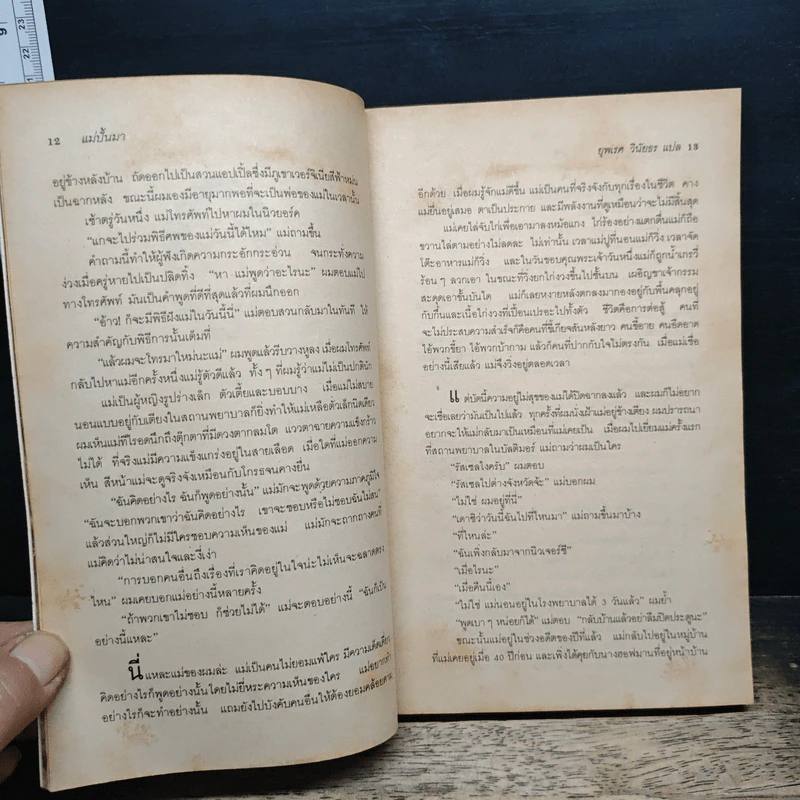 12 แม่ปั้นมา
อยู่ข้างหลังบ้าน ถัดออกไปเป็นสวนแอปเปิ้ลซึ่งมีภูเขาเวอร์จิเนียสีฟ้าหม่น
เป็นฉากหลัง ขณะนี้ผมเองมีอายุมากพอที่จะเป็นพ่อของแม่ในเวลานั้น
เช้าตรู่วันหนึ่ง แม่โทรศัพท์ไปหาผมในนิวยอร์ค
“แกจะไปร่วมพิธีศพของแม่วันนี้ได้ไหม” แม่ถามขึ้น
คำถามนี้ทำให้ผู้ฟังเกิดความกระอักกระอ่วน จนกระทั่งความ
ง่วงเมื่อครู่หายไปเป็นปลิดทิ้ง “หา แม่พูดว่าอะไรนะ” ผมตอบแม่ไป
ทางโทรศัพท์ มันเป็นคำพูดที่ดีที่สุดแล้วที่ผมนึกออก
“อ้าว! ก็จะมีพิธีฝังแม่ในวันนี้นี่” แม่ตอบสวนกลับมาในทันที ให้
ความสำคัญกับพิธีการนั้นเต็มที่
“แล้วผมจะโทรมาใหม่นะแม่” ผมพูดแล้วรีบวางหูลง เมื่อผมโทรศัพท์
กลับไปหาแม่อีกครั้งหนึ่งแม่รู้ตัวดีแล้ว ทั้งๆ ที่ผมรู้ว่าแม่ไม่เป็นปกตินัก
แม่เป็นผู้หญิงรูปร่างเล็ก ตัวเตี้ยและบอบบาง เมื่อแม่ไม่สบาย
นอนแบบอยู่กับเตียงในสถานพยาบาลก็ยิ่งทำให้แม่เหลือตัวเล็กนิดเดียว
ผมเห็นแม่ทีไรอดนึกถึงตุ๊กตาที่มีดวงตากลมโต แววตาฉายความแข็งกร้าว
ไม่ได้ ที่จริงแม่มีความแข็งแกร่งอยู่ในสายเลือด เมื่อใดที่แม่ออกความ
เห็น สีหน้าแม่จะดูจริงจังเหมือนกับโกรธจนคางยื่น
“ฉันคิดอย่างไร ฉันก็พูดอย่างนั้น” แม่มักจะพูดด้วยความภาคภูมิใจ
“ฉันจะบอกพวกเขาว่าฉันคิดอย่างไร เขาจะชอบหรือไม่ชอบฉันไม่สน”
แล้วส่วนใหญ่ก็ไม่มีใครชอบความเห็นของแม่ แม่มักจะถากถางคนที่
แม่คิดว่าไม่น่าสนใจและงี่เง่า
“การบอกคนอื่นถึงเรื่องที่เราคิดอยู่ในใจน่ะไม่เห็นจะฉลาดตรง
ไหน” ผมเคยบอกแม่อย่างนี้หลายครั้ง
“ถ้าพวกเขาไม่ชอบ ก็ช่วยไม่ได้” แม่จะตอบอย่างนี้ “ฉันก็เป็น
อย่างนี้แหละ”
นี่แหละแม่ของผมล่ะ แม่เป็นคนไม่ยอมแพ้ใคร มีความเด็ดเดี่ยว
คิดอย่างไรก็พูดอย่างนั้นโดยไม่ยี่หระความเห็นของใคร แม่อยากทำ
อย่างไรก็จะทำอย่างนั้น แถมยังไปบังคับคนอื่นให้ต้องยอมคล้อยตาม
ยุพเรศ วินัยธร แปล 13
อีกด้วย เมื่อผมรู้จักแม่ดีขึ้น แม่เป็นคนที่จริงจังกับทุกเรื่องในชีวิต คาง
แม่ยื่นอยู่เสมอ ตาเป็นประกาย และมีพลังงานที่ดูเหมือนว่าจะไม่มีสิ้นสุด
แม่เคยไล่จับไก่เพื่อเอามาลงหม้อแกง ไก่ร้องอย่างแตกตื่นแม่ก็ถือ
ขวานไล่ตามอย่างไม่ลดละ ไม่เท่านั้น เวลาแม่ปูที่นอนแม่ก็วิ่ง เวลาจัด
โต๊ะอาหารแม่ก็วิ่ง และในวันขอบคุณพระเจ้าวันหนึ่งแม่ก็ถูกน้ำเกรวี่
ร้อนๆ ลวกเอา ในขณะที่วิ่งยกไก่งวงขึ้นไปชั้นบน เผอิญขาเจ้ากรรม
สะดุดเอาขั้นบันได แม่ก็เลยหงายหลังตกลงมากองอยู่กับพื้นคลุกอยู่
กับกึ๋นและเนื้อไก่งวงที่เปื้อนเปรอะไปทั้งตัว ชีวิตคือการต่อสู้ คนที่
จะไม่ประสบความสำเร็จก็คือคนที่ขี้เกียจสันหลังยาว คนขี้อาย คนอืดอาด
ไอ้พวกขี้ยา ไอ้พวกบ้ากาม แล้วก็คนที่ปากกับใจไม่ตรงกัน เมื่อแม่เชื่อ
อย่างนี้เสียแล้ว แม่จึงวิ่งอยู่ตลอดเวลา
แต่บัดนี้ความอยู่ไม่สุขของแม่ได้ปิดฉากลงแล้ว และผมก็ไม่อยาก
จะเชื่อเลยว่ามันเป็นไปแล้ว ทุกครั้งที่ผมนั่งเฝ้าแม่อยู่ข้างเตียง ผมปรารถนา
อยากจะให้แม่กลับมาเป็นเหมือนที่แม่เคยเป็น เมื่อผมไปเยี่ยมแม่ครั้งแรก
ที่สถานพยาบาลในบัลติมอร์ แม่ถามว่าผมเป็นใคร
“รัสเซลไงครับ” ผมตอบ
“รัสเซลไปต่างจังหวัดจ้ะ” แม่บอกผม
“ไม่ใช่ ผมอยู่ที่นี่”
“เดาซิว่าวันนี้ฉันไปที่ไหนมา” แม่ถามขึ้นมาบ้าง
“ที่ไหนล่ะ”
“ฉันเพิ่งกลับมาจากนิวเจอร์ซี่”
“เมื่อไรนะ”
“เมื่อคืนนี้เอง”
“ไม่ใช่ แม่นอนอยู่ในโรงพยาบาลได้ 3 วันแล้ว” ผมย้ำ
“พูดเบาๆ หน่อยก็ได้” แม่ตอบ “กลับบ้านแล้วอย่าลืมปิดประตูนะ”
ขณะนั้นแม่อยู่ในช่วงอดีตของปีที่แล้ว แม่กลับไปอยู่ในหมู่บ้าน
ที่แม่เคยอยู่เมื่อ 40 ปีก่อน และเพิ่งได้คุยกับนางฮอฟมานที่อยู่หน้าบ้าน
9
23
22
21